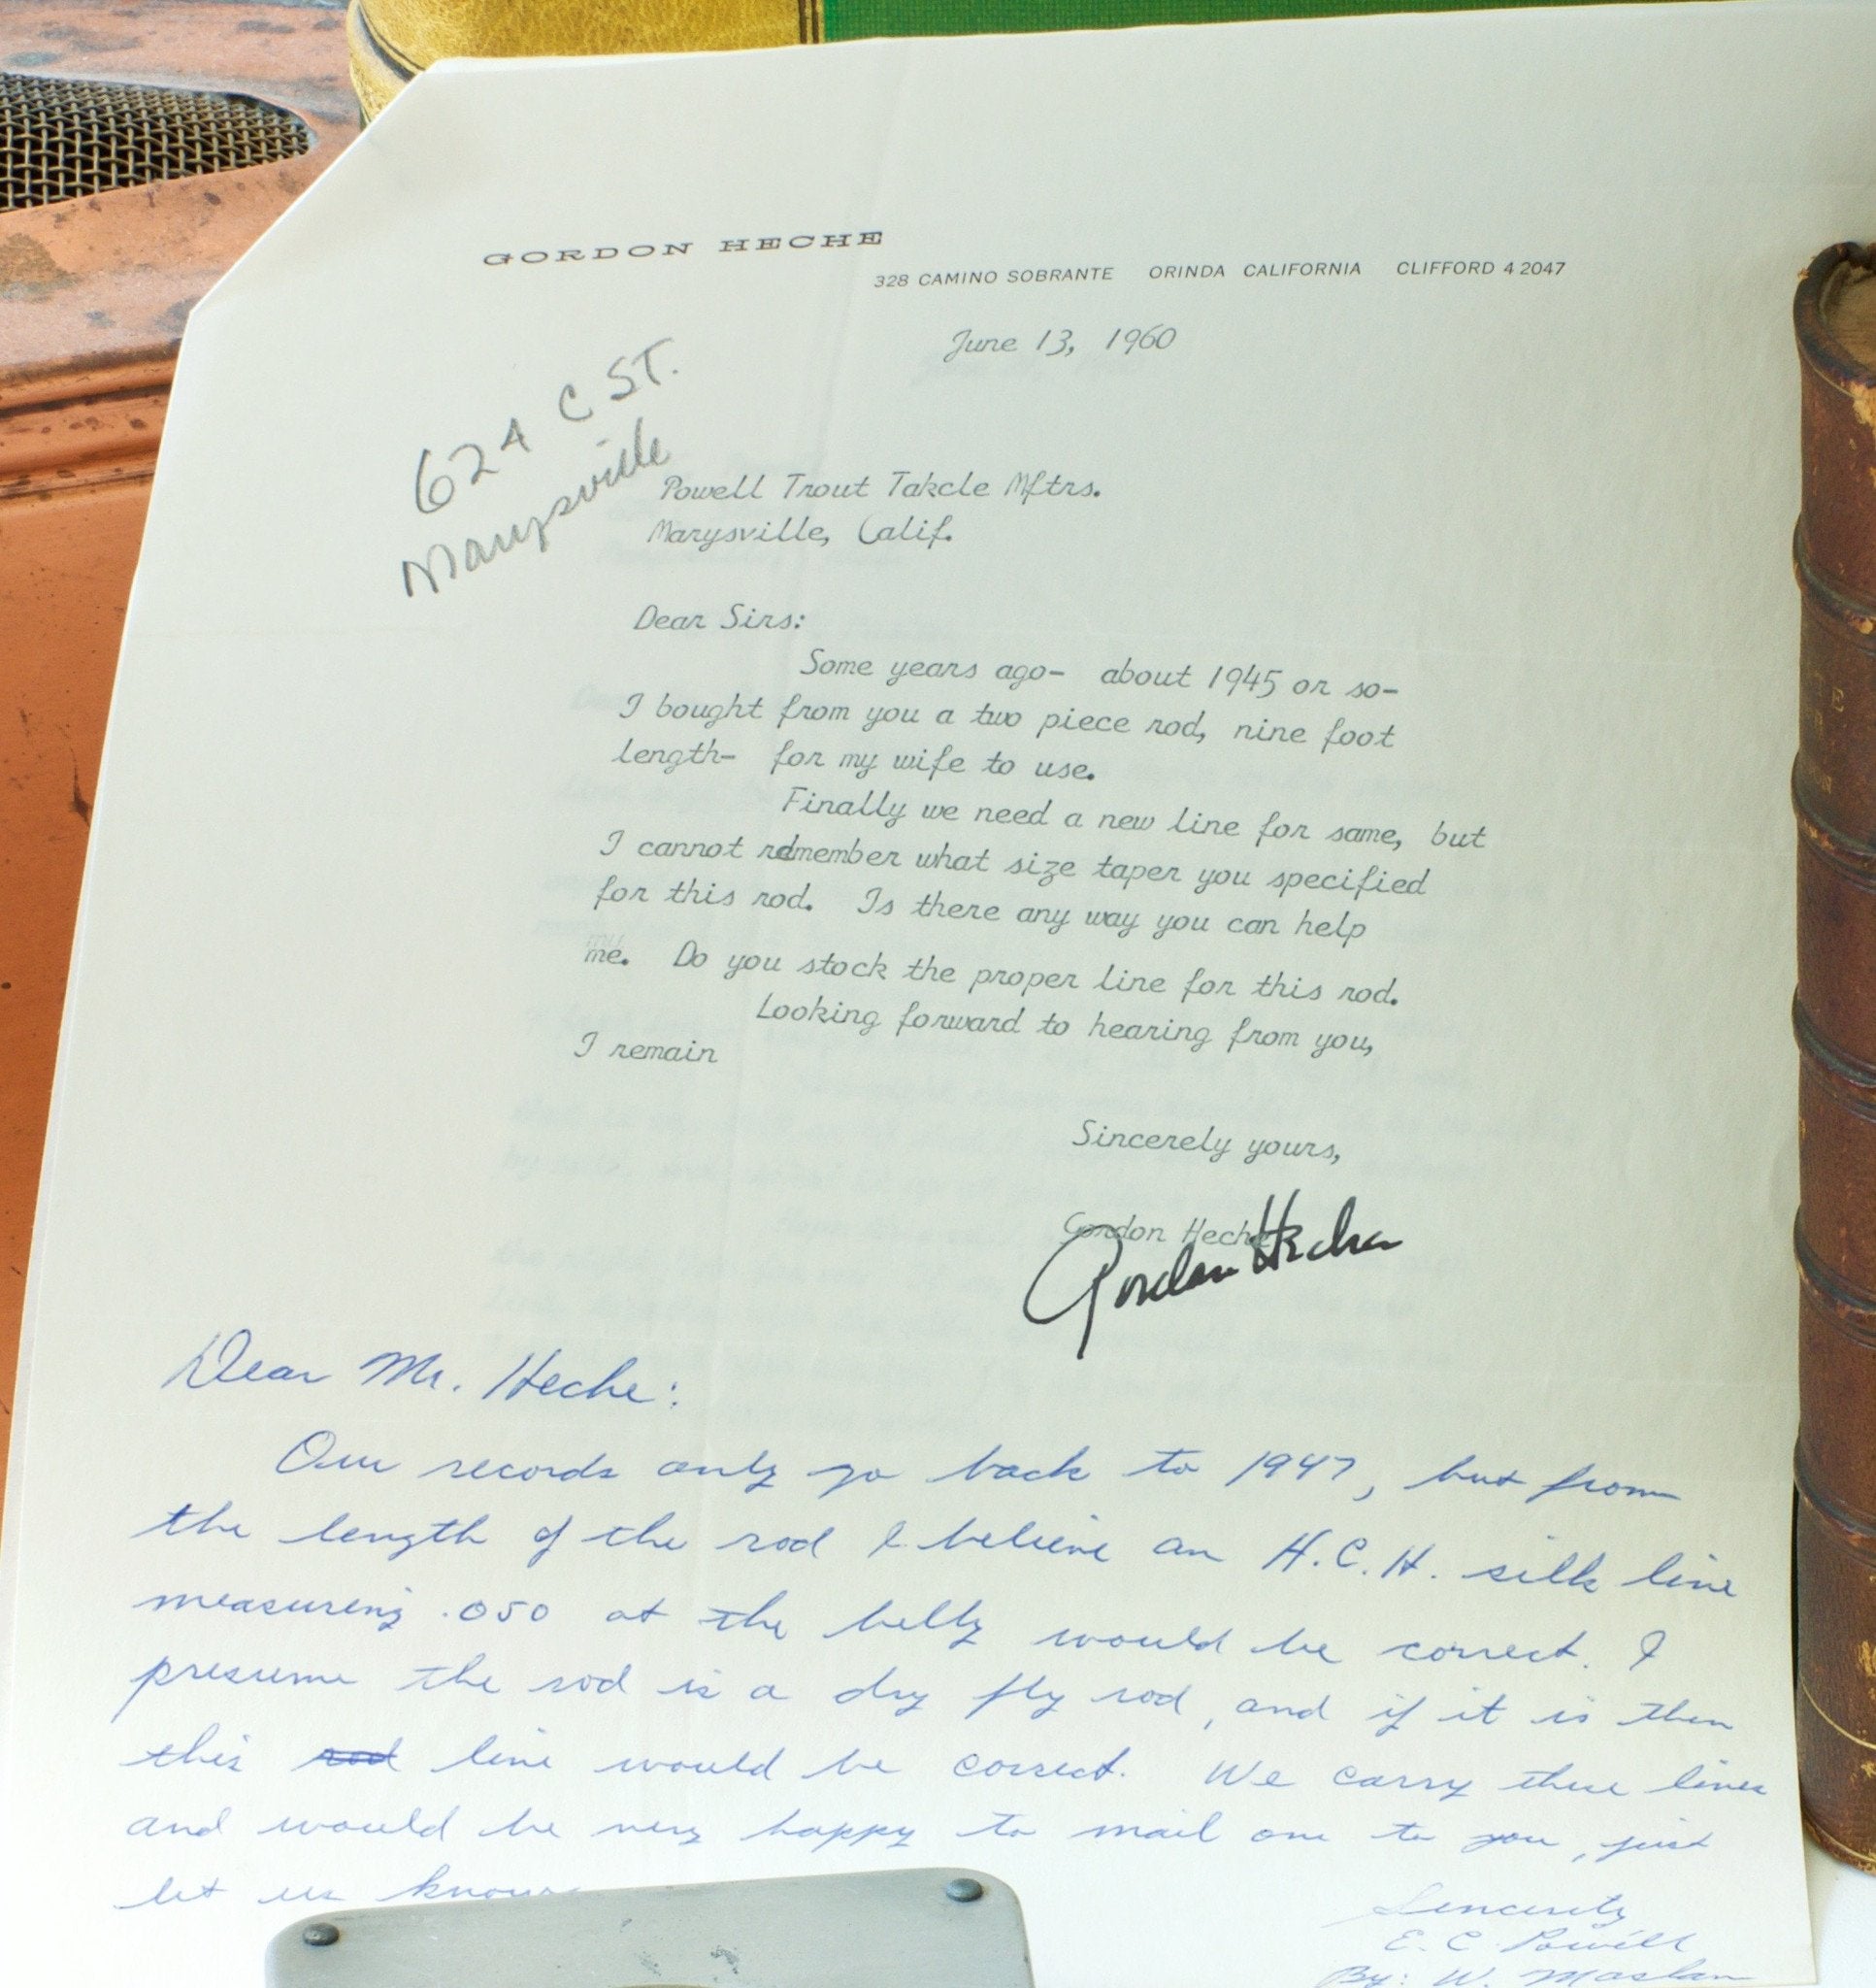 GORDON HECHE
328 CAMINO SOBRANTE ORINDA CALIFORNIA CLIFFORD 4 2047
June 13, 1960
624 C ST.
Marysville
Powell Trout Takcle Mftrs.
Marysville, Calif.
Dear Sirs:
Some years ago- about 1945 or so-
I bought from you a two piece rod, nine foot
length- for my wife to use.
Finally we need a new line for same, but
I cannot rdmember what size taper you specified
for this rod. Is there any way you can help
me. Do you stock the proper line for this rod.
Looking forward to hearing from you,
I remain
Sincerely yours,
Gordon Heche
Gordon Heche
Dear Mr. Heche:
Our records only go back to 1947, but from
the length of the rod I believe an H.C.H. silk line
measuring .050 at the belly would be correct. I
presume the rod is a dry fly rod, and if it is then
this rod line would be correct. We carry these lines
and would be very happy to mail one to you, just
let us know
Sincerely
E. C. Powell
By: W. Maslan